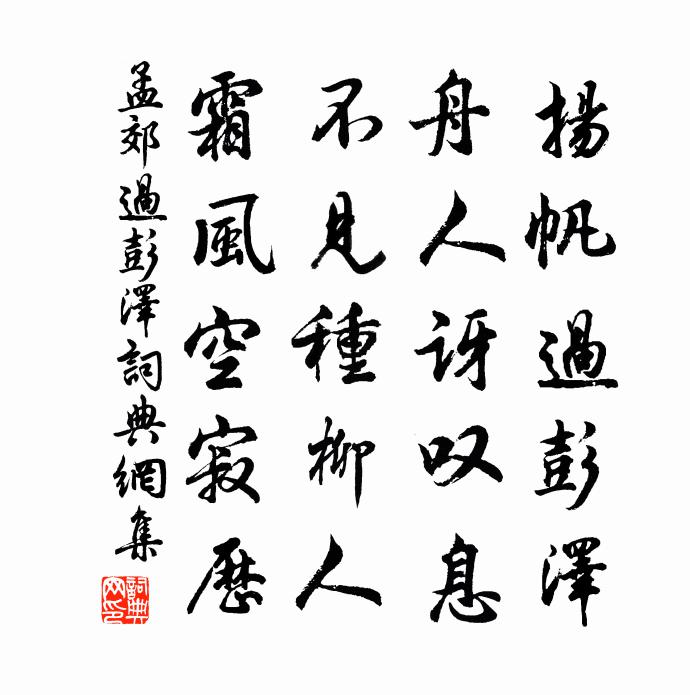 揚帆過彭澤
舟人訝叹息
不見種柳人
霜風空寂歷
孟郊過彭澤詞典網集
詞典网印